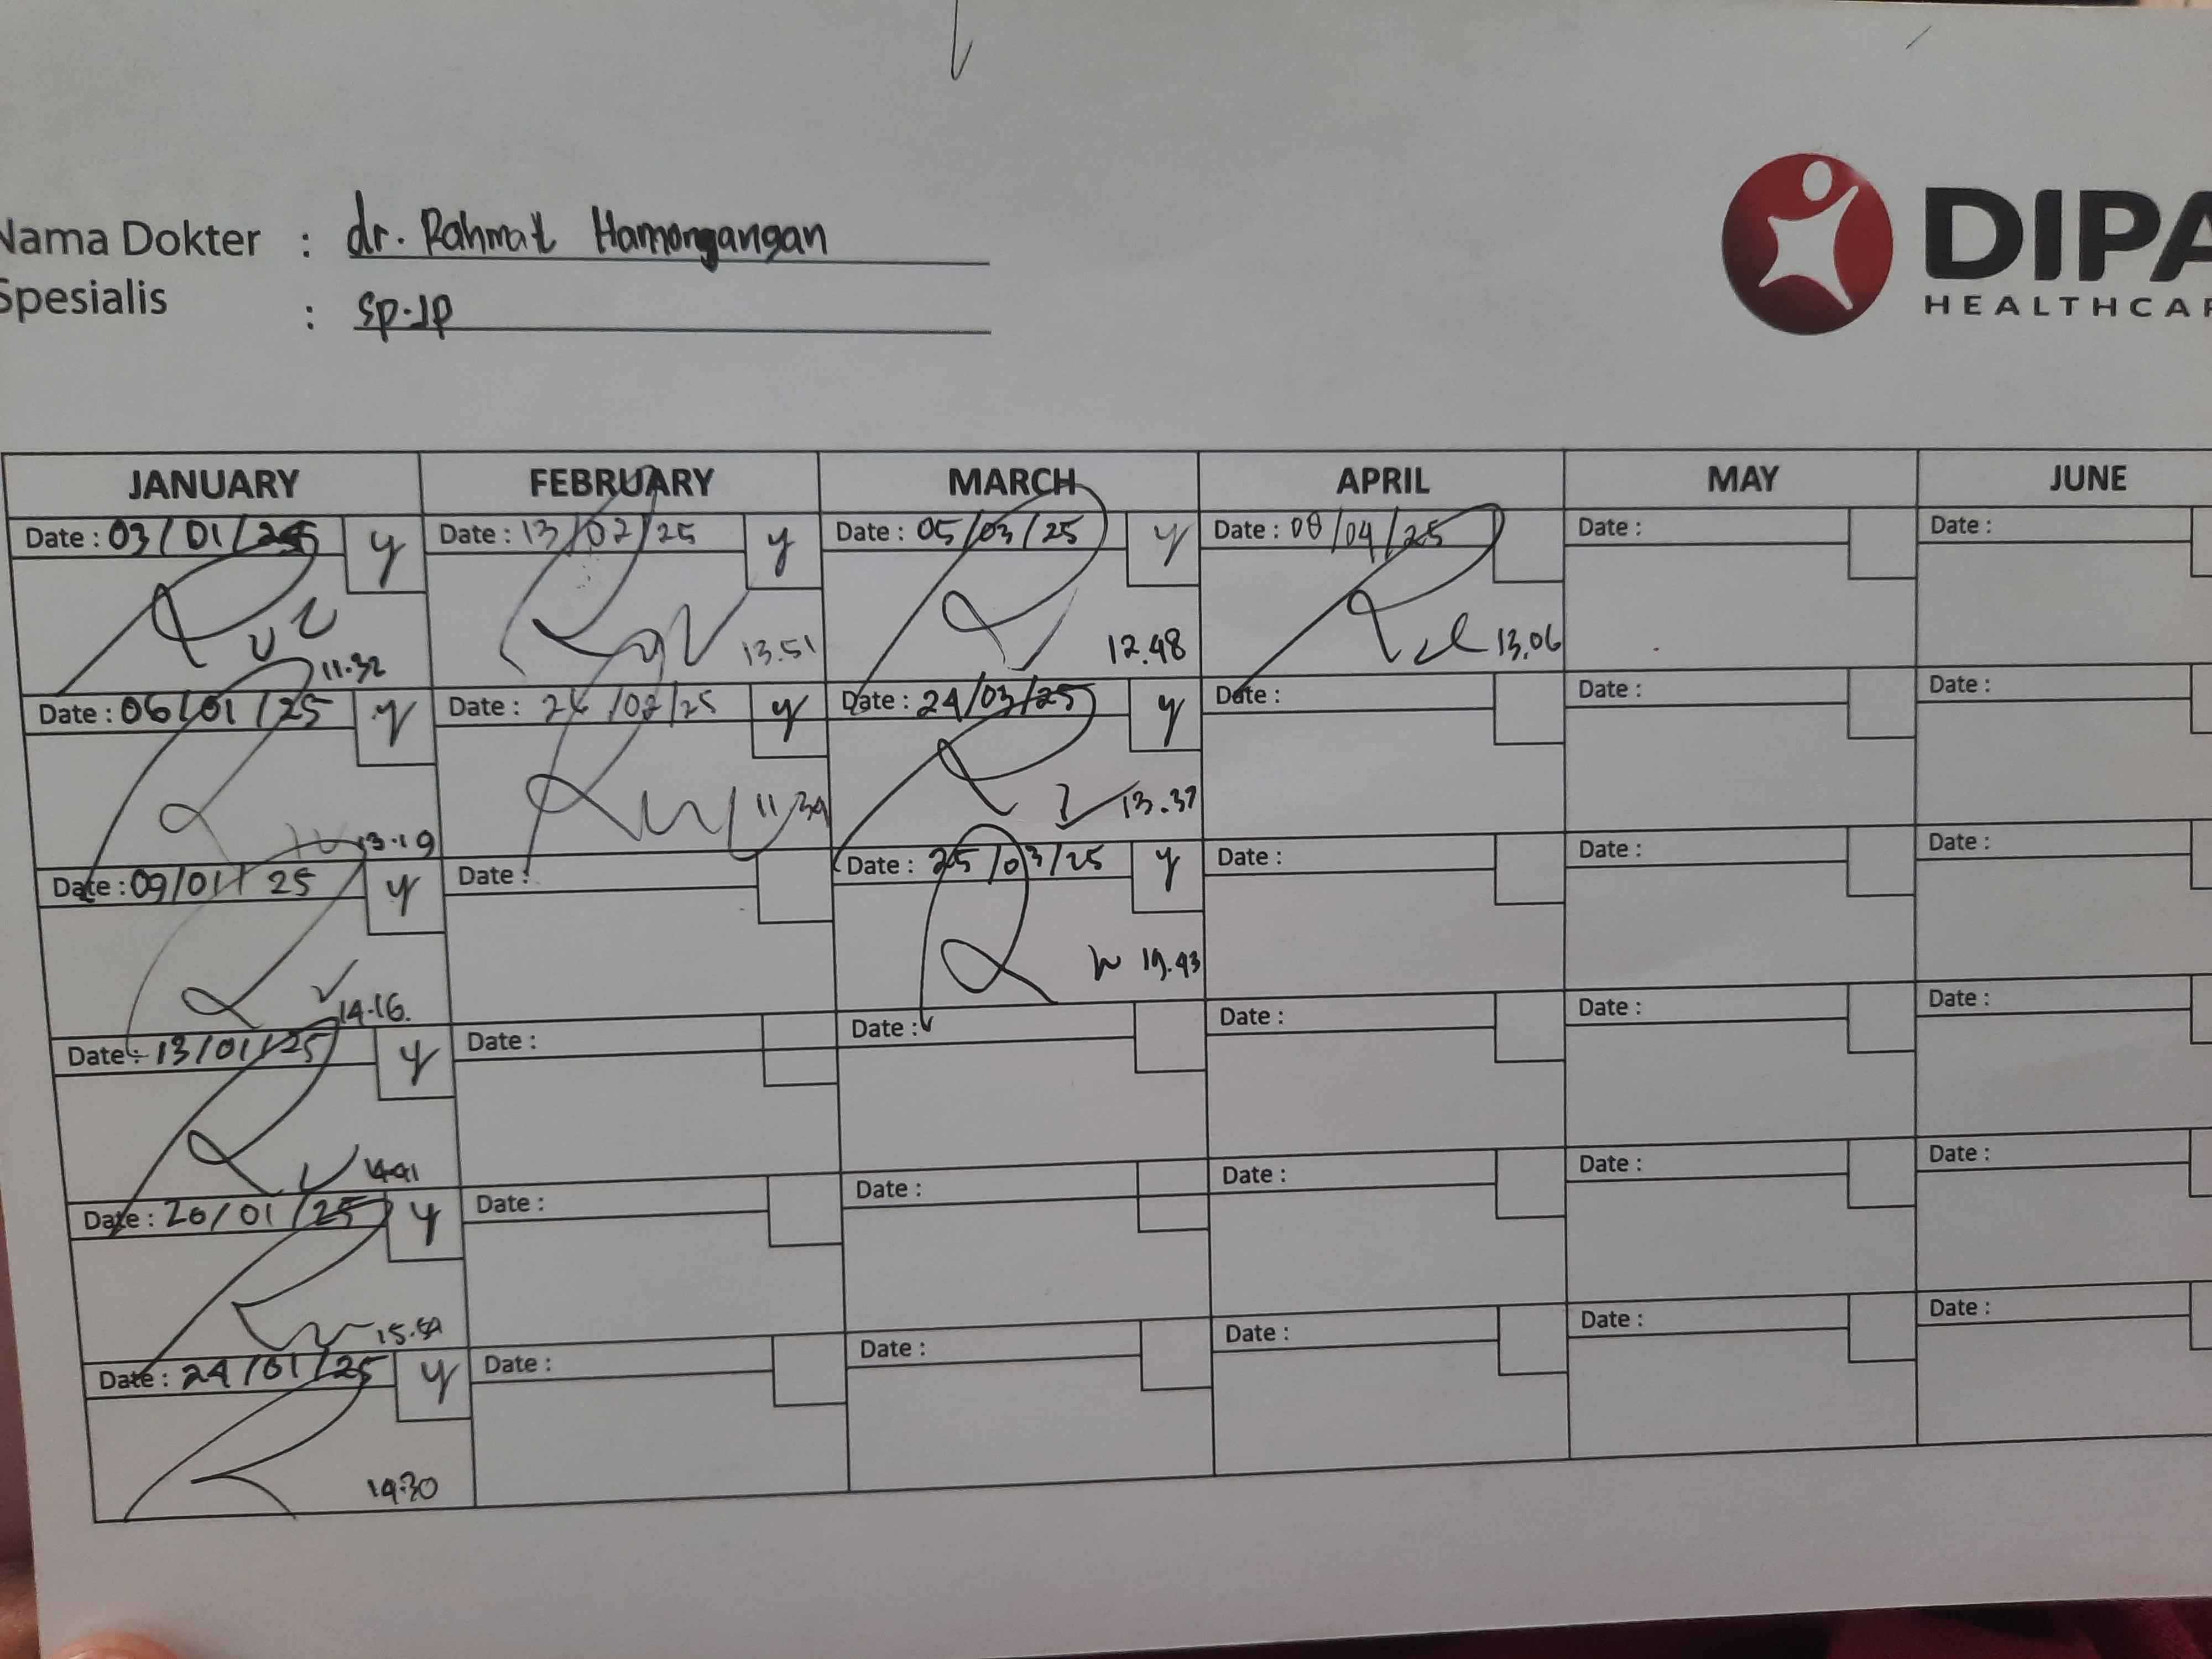 Nama Dokter : dr. Rahmat Hamongangan
Spesialis : SP.JP
DIPA
HEALTHCAR
JANUARY FEBRUARY MARCH APRIL MAY JUNE
Date : 03/01/25 y Date : 13/02/25 y Date : 05/03/25 y Date : 08/04/25 Date : Date :
11.32 13.51 12.48 13.06
Date : 06/01/25 y Date : 26/02/25 y Date : 24/03/25 y Date : Date : Date :
13.19 11.34 13.37
Date : 09/01/25 y Date : Date : 25/03/25 y Date : Date : Date :
14.16. 19.43
Date : 13/01/25 y Date : Date : Date : Date : Date :
14.41
Date : 20/01/25 y Date : Date : Date : Date : Date :
Date : 24/01/25 y Date : Date : Date : Date : Date :
14.30